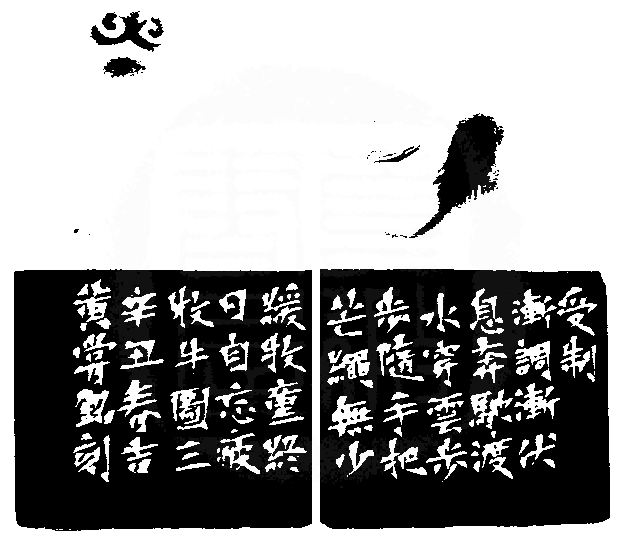 受制
漸調漸伏
息奔馳渡
水穿雲步
步隨手把
芒繩無少
緩牧童終
日自忘疲
牧牛圖三
辛丑春吉
黃嘗銘刻